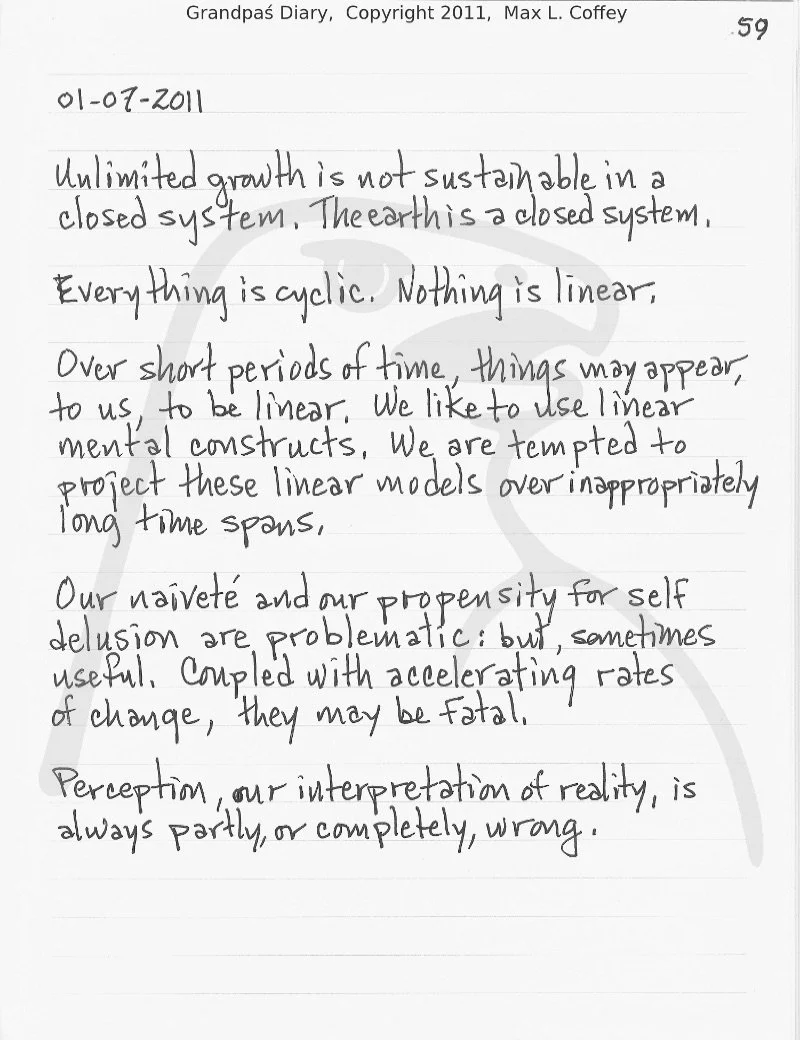 Grandpaś Diary, Copyright 2011, Max L. Coffey
59
01-07-2011
Unlimited growth is not sustainable in a
closed system. The earth is a closed system.
Everything is cyclic. Nothing is linear.
Over short periods of time, things may appear,
to us, to be linear. We like to use linear
mental constructs. We are tempted to
project these linear models over inappropriately
long time spans.
Our naîveté and our propensity for self
delusion are problematic: but, sometimes
useful. Coupled with accelerating rates
of change, they may be fatal.
Perception, our interpretation of reality, is
always partly, or completely, wrong.